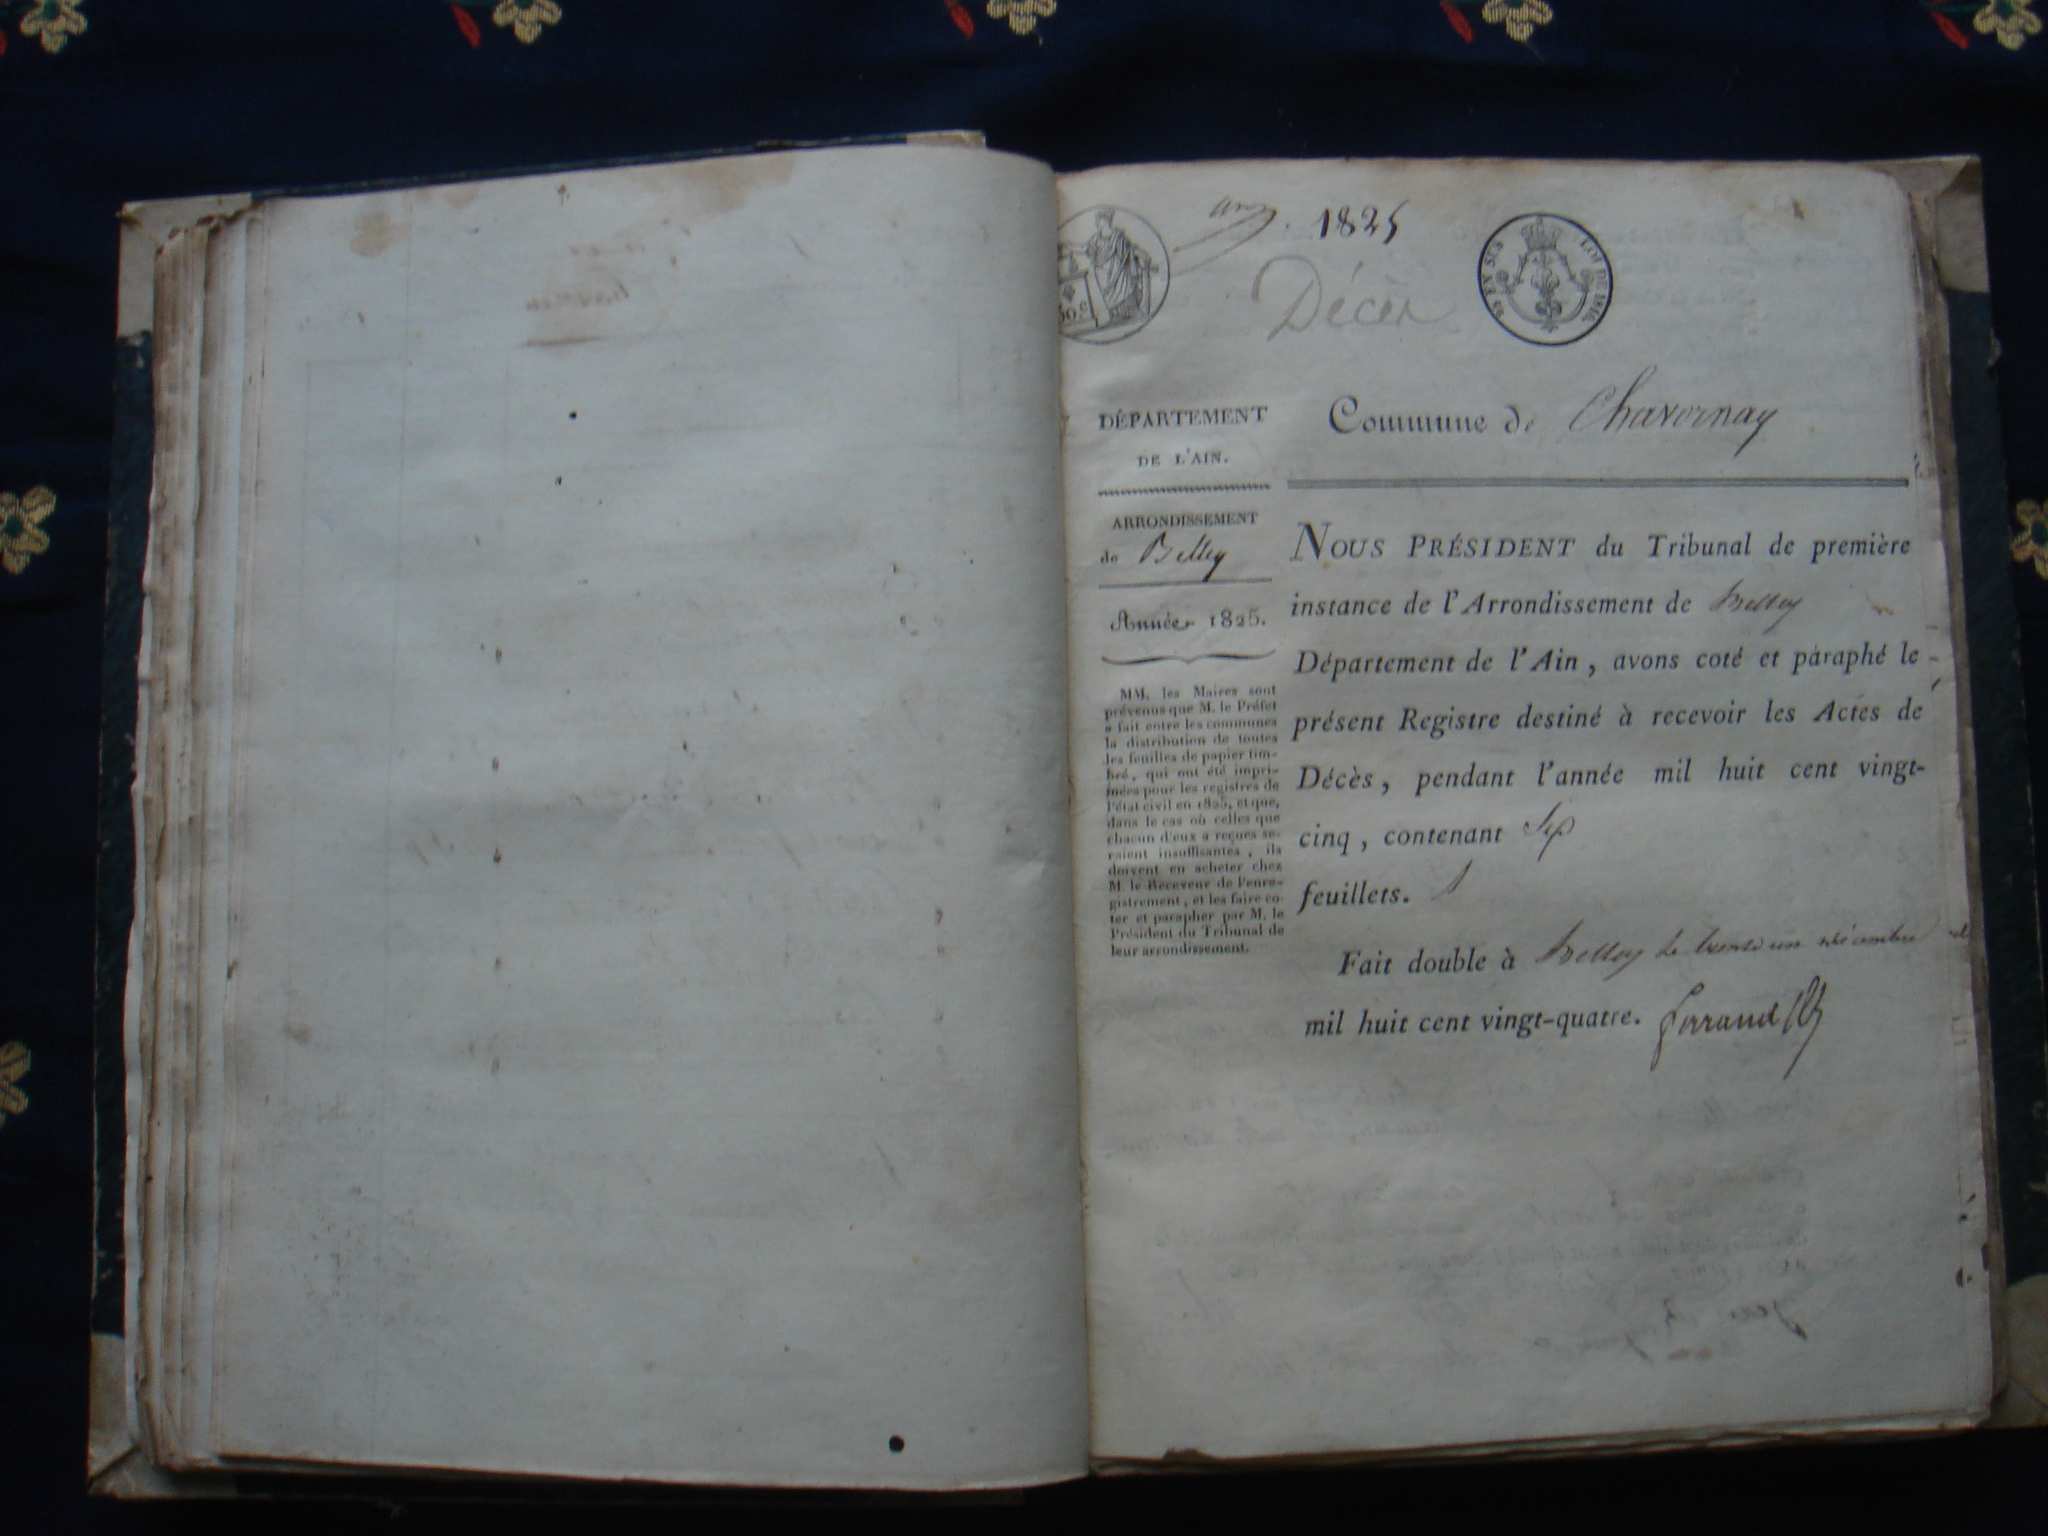 1825
Décès
50.C
EN SUS
LOI DE 1816
Commune de Chavornay
DÉPARTEMENT
DE L'AIN.
ARRONDISSEMENT
de Belley
Année 1825.
MM. les Maires sont
prévenus que M. le Préfet
a fait entre les communes
la distribution de toutes
les feuilles de papier tim-
bré, qui ont été impri-
mées pour les registres de
l'état civil en 1825, et que,
dans le cas où celles que
chacun d'eux a reçues se-
raient insuffisantes, ils
doivent en acheter chez
M. le Receveur de l'enre-
gistrement, et les faire co-
ter et parapher par M. le
Président du Tribunal de
leur arrondissement.
NOUS PRÉSIDENT du Tribunal de première
instance de l'Arrondissement de Belley
Département de l'Ain, avons coté et paraphé le
présent Registre destiné à recevoir les Actes de
Décès, pendant l'année mil huit cent vingt-
cinq, contenant
feuillets.
Fait double à Belley le trente un décembre
mil huit cent vingt-quatre. Ferrand